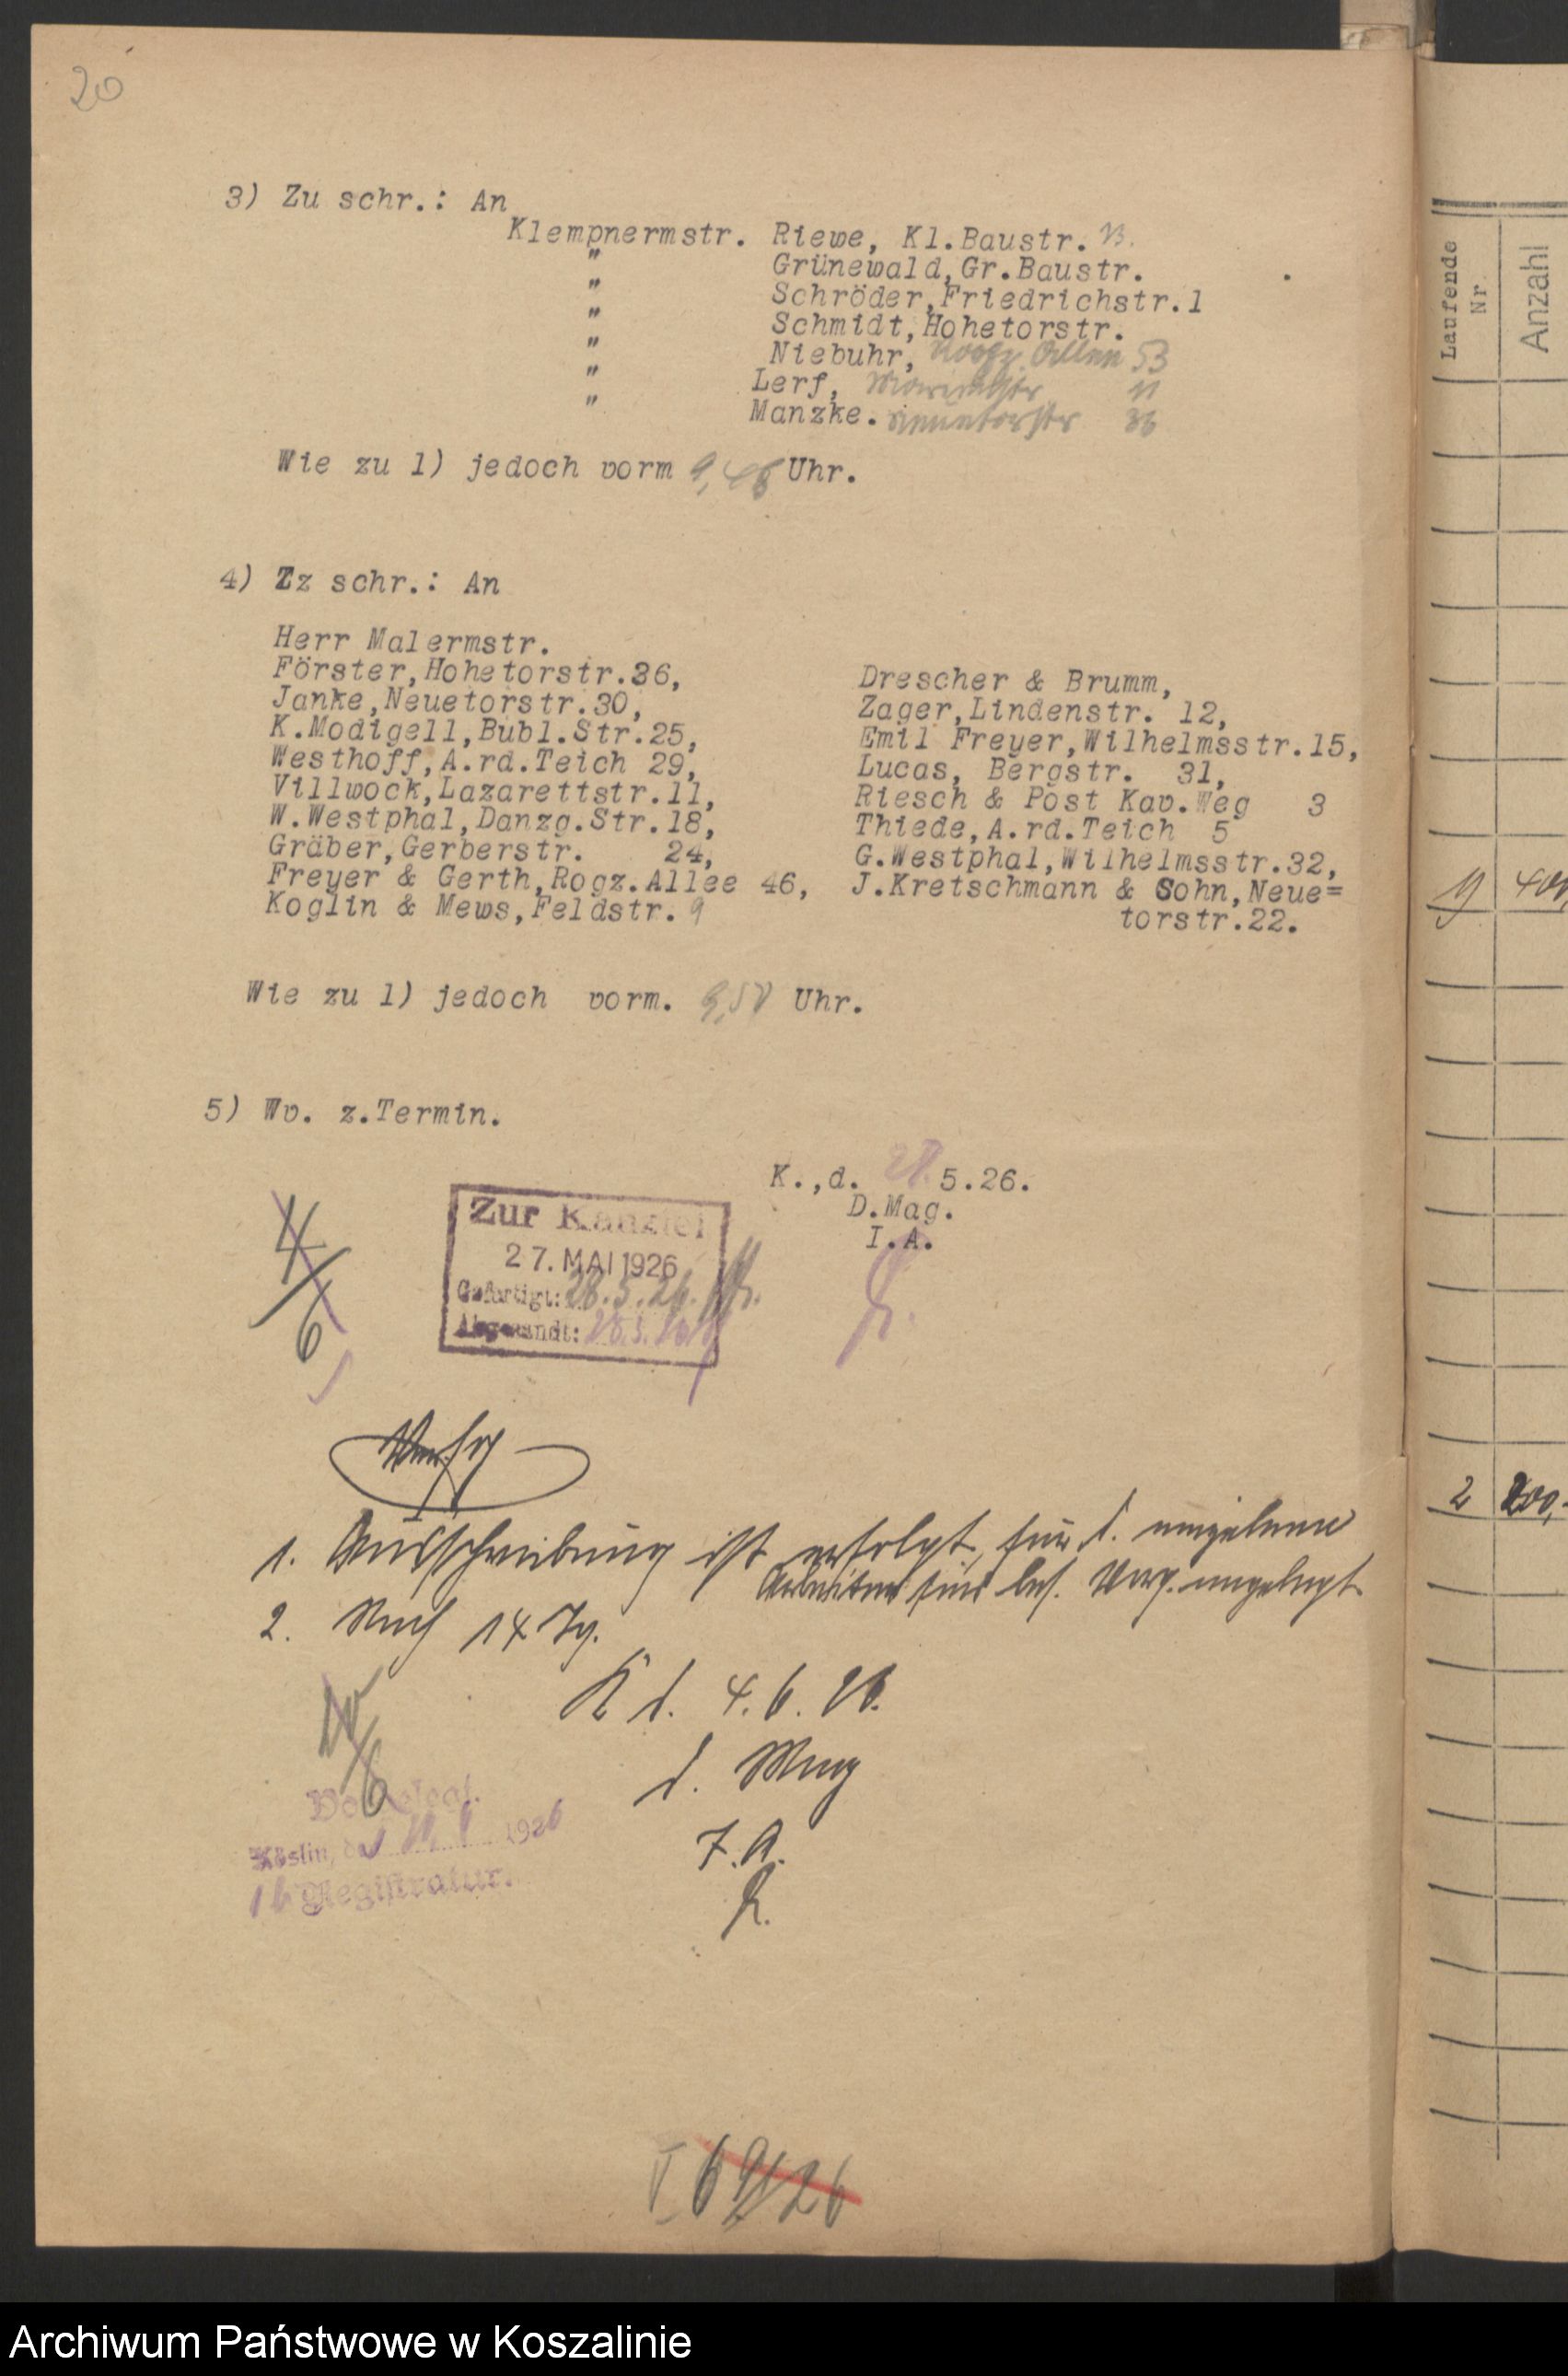 20
3) Zu schr.: An
Klempnermstr. Riewe, Kl.Baustr.
" Grünewald,Gr.Baustr.
" Schröder,Friedrichstr.1
" Schmidt,Hohetorstr.
" Niebuhr, Rogz. Allee 53
" Lerf, 11
" Manzke. Neuetorstr 36
Wie zu 1) jedoch vorm Uhr.
4) Zz schr.: An
Herr Malermstr.
Förster,Hohetorstr.36,
Janke,Neuetorstr.30,
K.Modigell,Bubl.Str.25,
Westhoff,A.rd.Teich 29,
Villwock,Lazarettstr.11,
W.Westphal,Danzg.Str.18,
Gräber,Gerberstr. 24,
Freyer & Gerth,Rogz.Allee 46,
Koglin & Mews,Feldstr. 9
Drescher & Brumm,
Zager,Lindenstr. 12,
Emil Freyer,Wilhelmsstr.15,
Lucas, Bergstr. 31,
Riesch & Post Kav.Weg 3
Thiede,A.rd.Teich 5
G.Westphal,Wilhelmsstr.32,
J.Kretschmann & Sohn,Neue=
torstr.22.
Wie zu 1) jedoch vorm. Uhr.
5) Wv. z.Termin.
K.,d. 5.26.
D.Mag.
I.A.
4/6
Zur Kanzlei
27. MAI 1926
Gefertigt: 28.5.26.
Abgesandt:
1. Ausschreibung ist erfolgt, für d. einzelnen
Arbeiten sind bes. Vorg. angelegt
2. Nach 14 Tg.
K d. 4.6.26.
d. Mag
I.A.
Köslin, 1926
Registratur.
69/26
Laufende Nr.
Anzahl
2
Archiwum Państwowe w Koszalinie